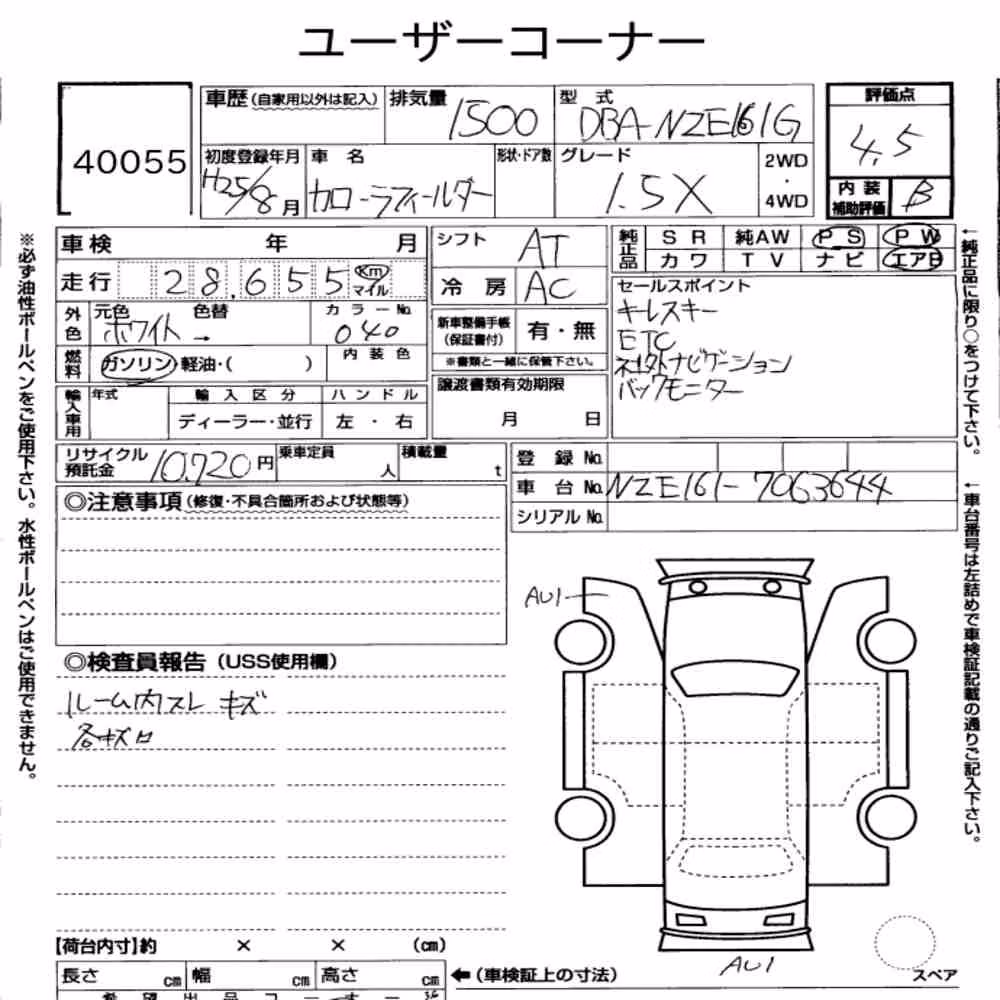 ユーザーコーナー
40055
車歴(自家用以外は記入) 排気量 1500 型式 DBA-NZE161G 評価点 4.5
初度登録年月 H25/8月 車名 カローラフィールダー 形状・ドア数 グレード 1.5X 2WD・4WD 内装補助評価 B
車検 年 月
走行 28,655 Km マイル
外色 元色 ホワイト → 色替 カラーNo. 040
燃料 ガソリン・軽油・( ) 内装色
輸入車用 年式 輸入区分 ディーラー・並行 ハンドル 左・右
シフト AT
冷房 AC
新車整備手帳(保証書付) 有・無
※書類と一緒に保管下さい。
譲渡書類有効期限
月 日
純正品 SR 純AW PS PW
カワ TV ナビ エアB
セールスポイント
キーレスキー
ETC
社外ナビゲーション
バックモニター
リサイクル預託金 10,720円 乗車定員 人 積載量 t
登録No.
車台No. NZE161-7063644
シリアルNo.
◎注意事項(修復・不具合箇所および状態等)
◎検査員報告(USS使用欄)
ルーム内スレ キズ
各キズ
AU1
AU1
スペア
【荷台内寸】約 × × (cm)
長さ cm 幅 cm 高さ cm ←(車検証上の寸法)
※必ず油性ボールペンをご使用下さい。水性ボールペンはご使用できません。
←純正品に限り○をつけて下さい。
←車台番号は左詰めで車検証記載の通りご記入下さい。